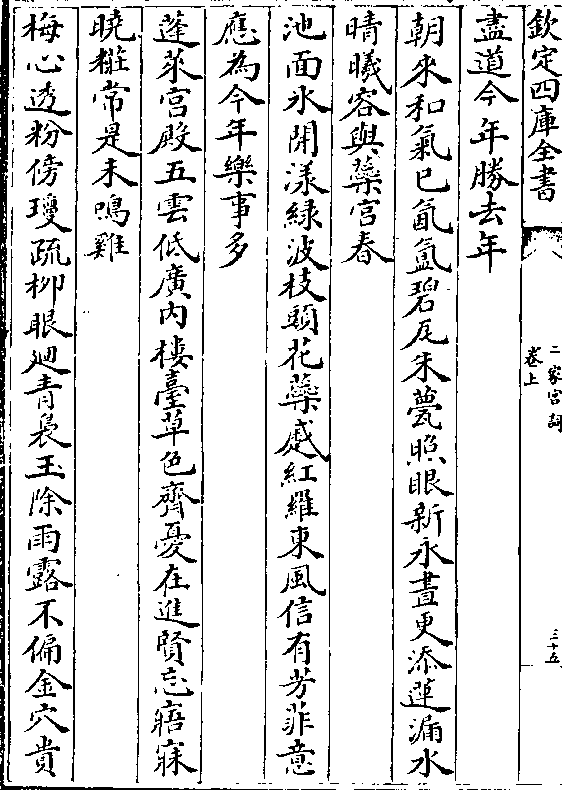 欽定四庫全書
二家宮詞
卷上
三十五
盡道今年勝去年
朝來和氣已氤氳碧瓦朱甍照眼新永晝更添蓮漏水
晴曦容與蘂宮春
池面氷開漾緑波枝頭花蘂蹙紅羅東風信有芳菲意
應為今年樂事多
蓬萊宮殿五雲低廣内樓臺草色齊憂在進賢忘寤寐
曉糚常是未鳴雞
梅心透粉傍瓊疏柳眼廻青裊玉除雨露不偏金穴貴